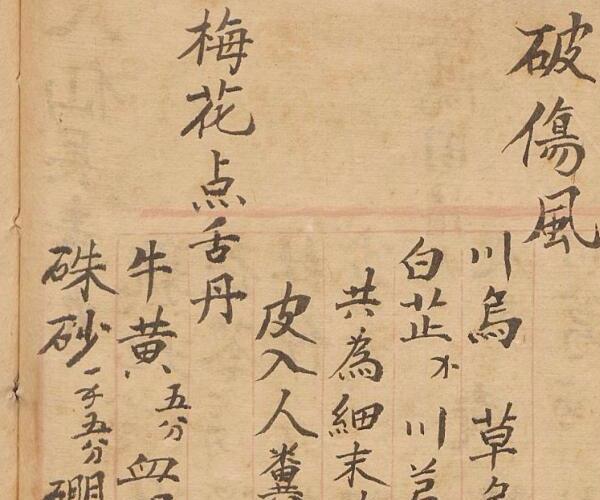 破傷風
川烏 草烏
白芷才 川芎
共為細末
皮入人糞
梅花点舌丹
牛黃五分 血
硃砂一才五分 硼